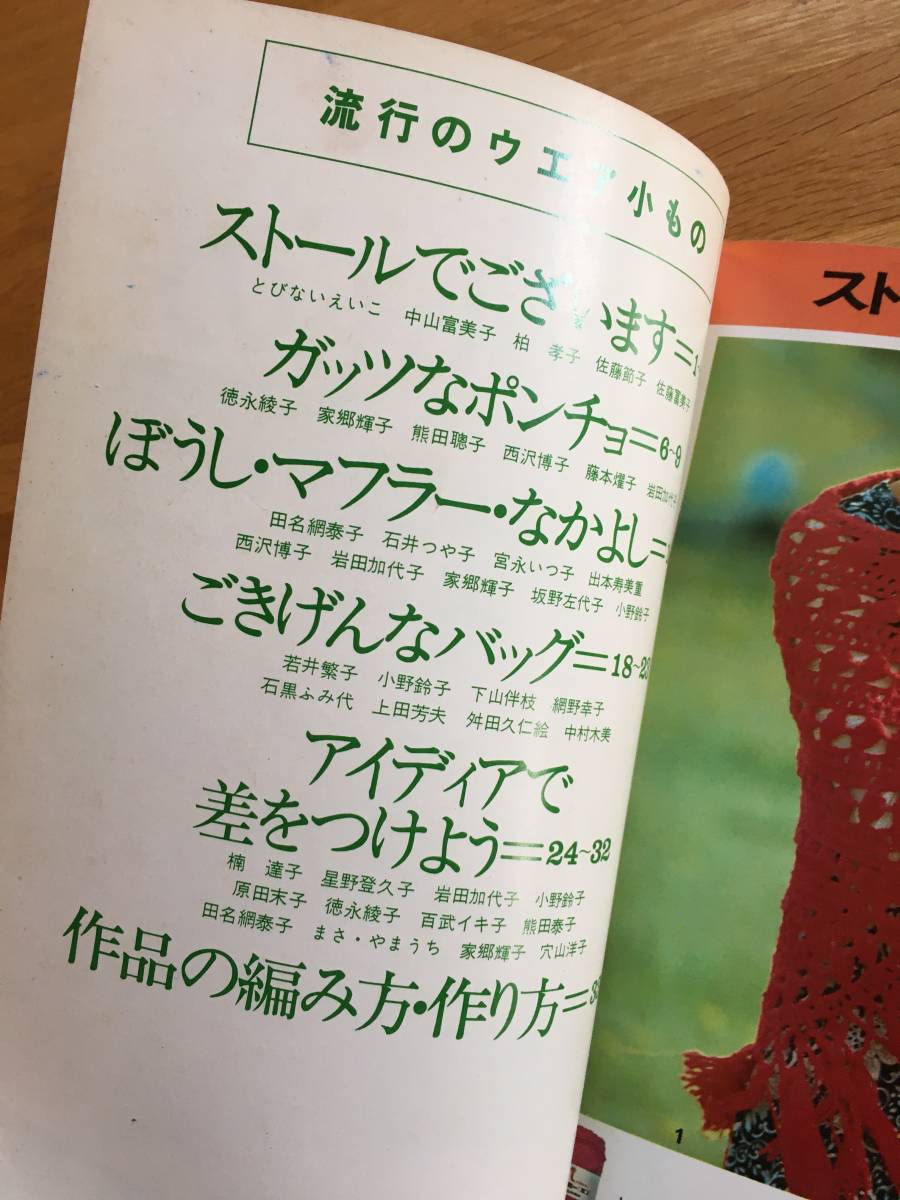 流行のウエア小もの
ストールでございます=1~
とびないえいこ 中山富美子 柏 孝子 佐藤節子 佐藤富美子
ガッツなポンチョ=6~9
徳永綾子 家郷輝子 熊田聰子 西沢博子 藤本燿子 岩田加代子
ぼうし・マフラー・なかよし=
田名網泰子 石井つや子 宮永いつ子 出本寿美重
西沢博子 岩田加代子 家郷輝子 坂野左代子 小野鈴子
ごきげんなバッグ=18~23
若井繁子 小野鈴子 下山伴枝 網野幸子
石黒ふみ代 上田芳夫 舛田久仁絵 中村木美
アイディアで
差をつけよう=24~32
楠 達子 星野登久子 岩田加代子 小野鈴子
原田末子 徳永綾子 百武イキ子 熊田泰子
田名網泰子 まさ・やまうち 家郷輝子 穴山洋子
作品の編み方・作り方=3
スト
1